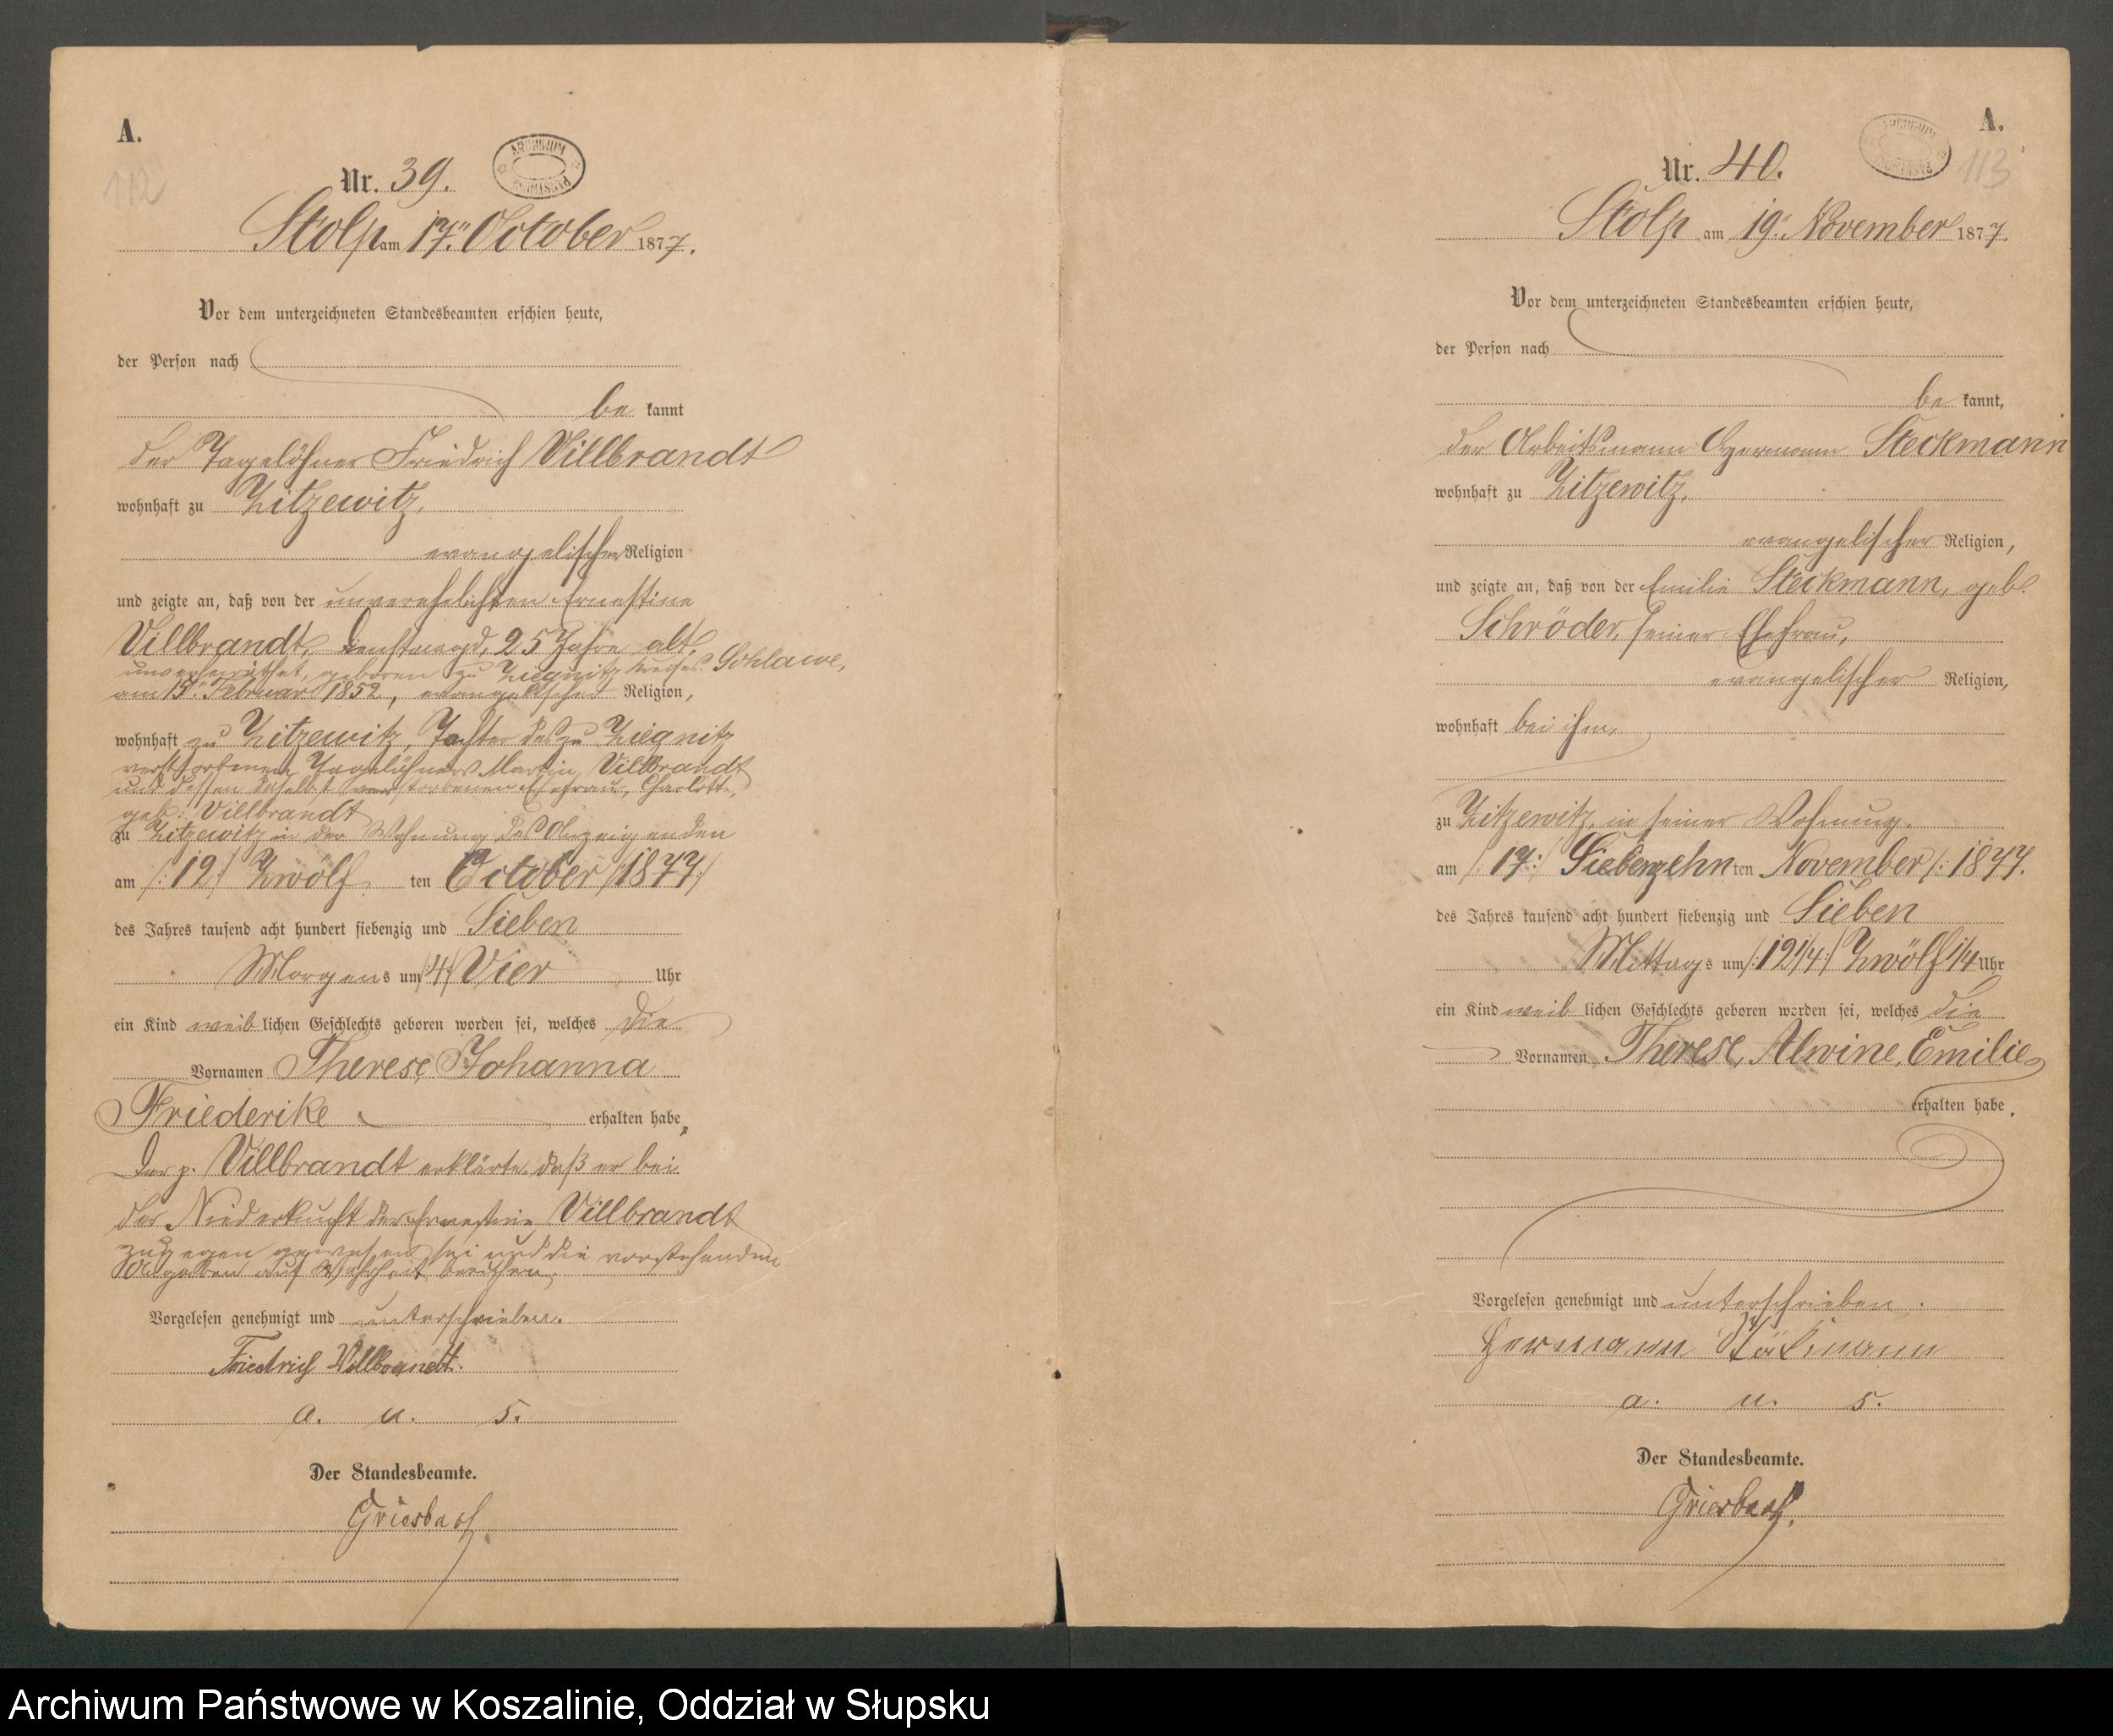 A.
112
Nr. 39.
ARCHIWUM PAŃSTWOWE
Stolp am 17ten October 1877.
Vor dem unterzeichneten Standesbeamten erschien heute,
der Person nach
be kannt
der Tagelöhner Friedrich Villbrandt
wohnhaft zu Zitzewitz,
evangelischer Religion
und zeigte an, daß von der unverehelichten Ernestine
Villbrandt, Dienstmagd, 25 Jahre alt,
unverheirathet, geboren zu Ziegnitz Kreises Schlawe,
am 15ten Februar 1852, evangelischer Religion,
wohnhaft zu Zitzewitz, Tochter des zu Ziegnitz
verstorbenen Tagelöhners Martin Villbrandt
und dessen daselbst verstorbenen Ehefrau, Charlotte,
geb: Villbrandt
zu Zitzewitz in der Wohnung des Anzeigenden
am /:12:/ Zwölf ten October /:1877:/
des Jahres tausend acht hundert siebenzig und Sieben
Morgens um /:4:/ Vier Uhr
ein Kind weib lichen Geschlechts geboren worden sei, welches die
Vornamen Therese, Johanna
Friederike erhalten habe,
Der p. Villbrandt erklärte, daß er bei
der Niederkunft der Ernestine Villbrandt
zugegen gewesen sei und die vorstehenden
Angaben auf Wahrheit beruhen,
Vorgelesen genehmigt und unterschrieben.
Friedrich Villbrandt.
a. u. s.
Der Standesbeamte.
Griesbach.
A.
113
Nr. 40.
ARCHIWUM PAŃSTWOWE
Stolp am 19ten November 1877.
Vor dem unterzeichneten Standesbeamten erschien heute,
der Person nach
be kannt,
der Arbeitsmann Hermann Steckmann
wohnhaft zu Zitzewitz,
evangelischer Religion,
und zeigte an, daß von der Emilie Steckmann, geb.
Schröder, seiner Ehefrau,
evangelischer Religion,
wohnhaft bei ihm,
zu Zitzewitz, in seiner Wohnung,
am /:17:/ Siebenzehn ten November /:1877.
des Jahres tausend acht hundert siebenzig und Sieben
Mittags um /:12¼:/ Zwölf ¼ Uhr
ein Kind weib lichen Geschlechts geboren worden sei, welches die
Vornamen Therese, Alwine, Emilie
erhalten habe.
Vorgelesen genehmigt und unterschrieben.
Hermann Stäkmann
a. u. s.
Der Standesbeamte.
Griesbach.
Archiwum Państwowe w Koszalinie, Oddział w Słupsku